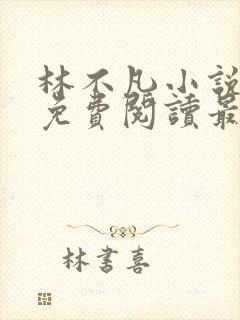 林不凡小說
免費閱讀最
林書喜